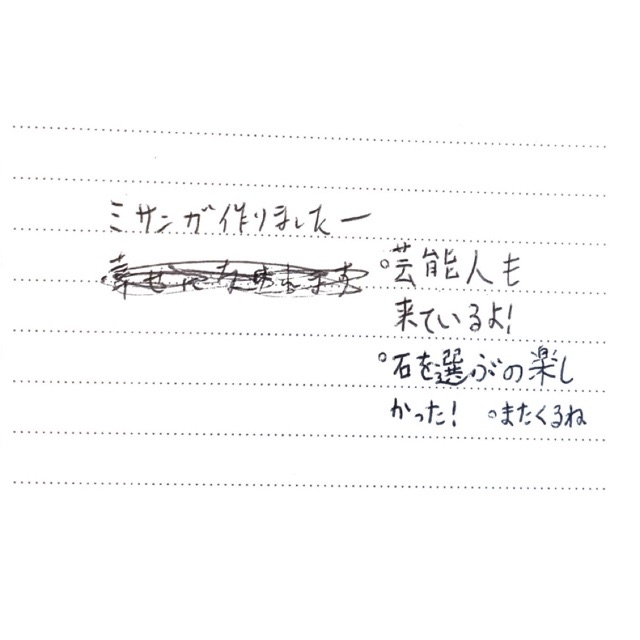 ミサンガ作りましたー
幸せになれます
。芸能人も
来ているよ!
。石を選ぶの楽し
かった! 。またくるね